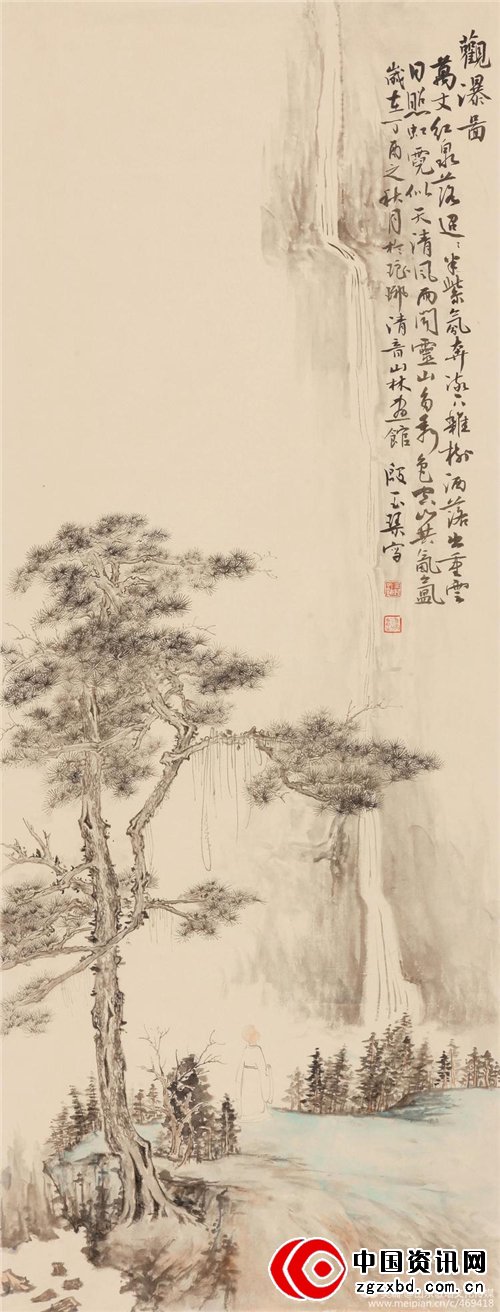 觀瀑啚
萬丈紅泉落迢〻半紫氛奔流下雜樹洒落出重雲
日照虹霓似天清風雨聞靈山多秀色空水共氤氳
歲在丁酉之秋月於琅琊清音山林畫館 殷玉寫
中国资讯网
zgzxbd.com.cn
www.meipian.cn/c/469418